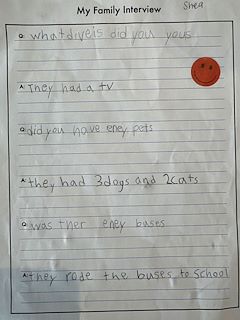 My Family Interview
Shea
Q: what dives did you yous
A: They had a tv
Q: did you have eney pets
A: they had 3 dogs and 2 cats
Q: was ther eney buses
A: they rode the buses to School